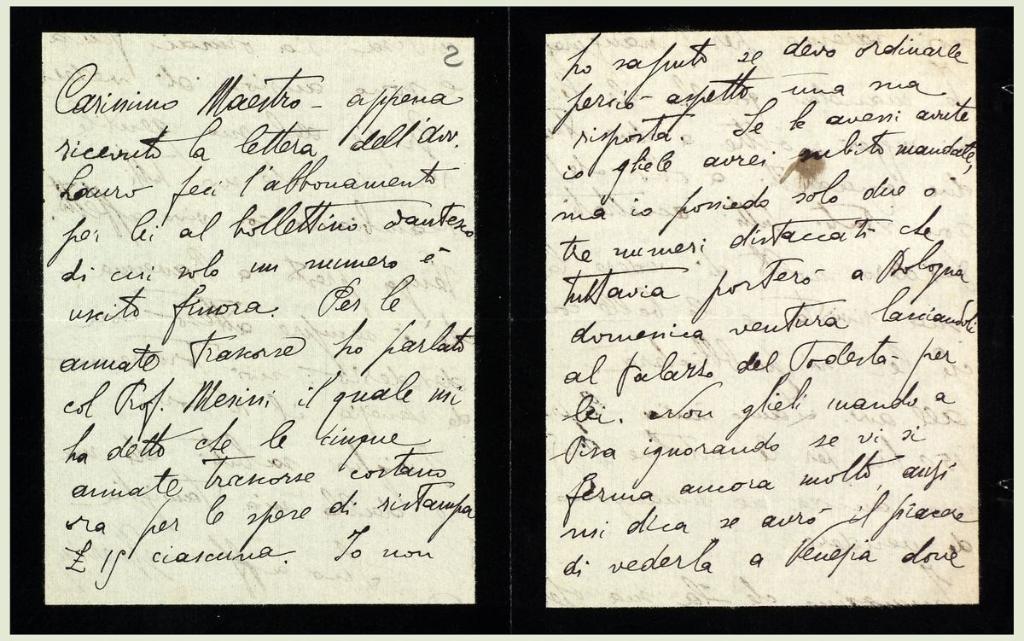 Carissimo Maestro – appena
ricevuto la lettera dell'Avv.
Lauro feci l'abbonamento
per lei al bollettino dantesco
di cui solo un numero è
uscito finora. Per le
annate trascorse ho parlato
col Prof. Mesini il quale mi
ha detto che le cinque
annate trascorse costano
ora per le spese di ristampa
£ 15 ciascuna. Io non
ho saputo se devo ordinarle
perciò aspetto una sua
risposta. Se le avessi avute
io gliele avrei subito mandate,
ma io possiedo solo due o
tre numeri distaccati che
tuttavia porterò a Bologna
domenica ventura lasciandoli
al Palazzo del Podestà per
lei. Non glieli mando a
Pisa ignorando se vi si
ferma ancora molto, anzi
mi dica se avrò il piacere
di vederla a Venezia dove